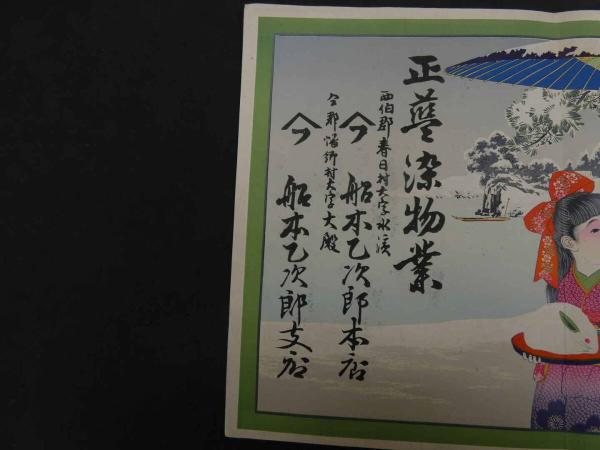 正藍染物業
西伯郡春日村大字水濱
船本乙次郎本店
仝郡幡郷村大字大殿
船本乙次郎支店